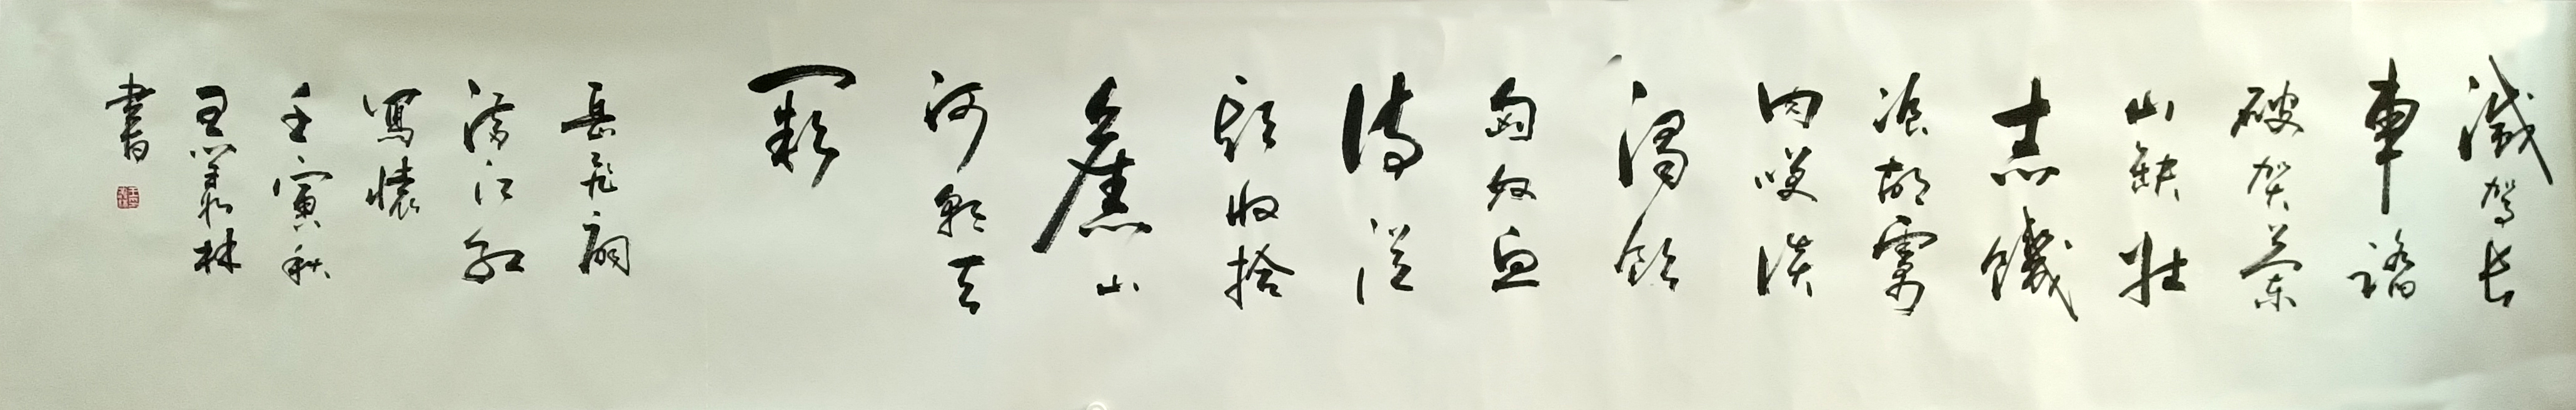 滅駕長
車踏
破賀蘭
山缺壯
志饑
飡胡虜
肉咲談
渴飲
匈奴血
待從
頭收拾
舊山
河朝天
闕
岳飛詞
滿江紅
寫懷
壬寅秋
林
書